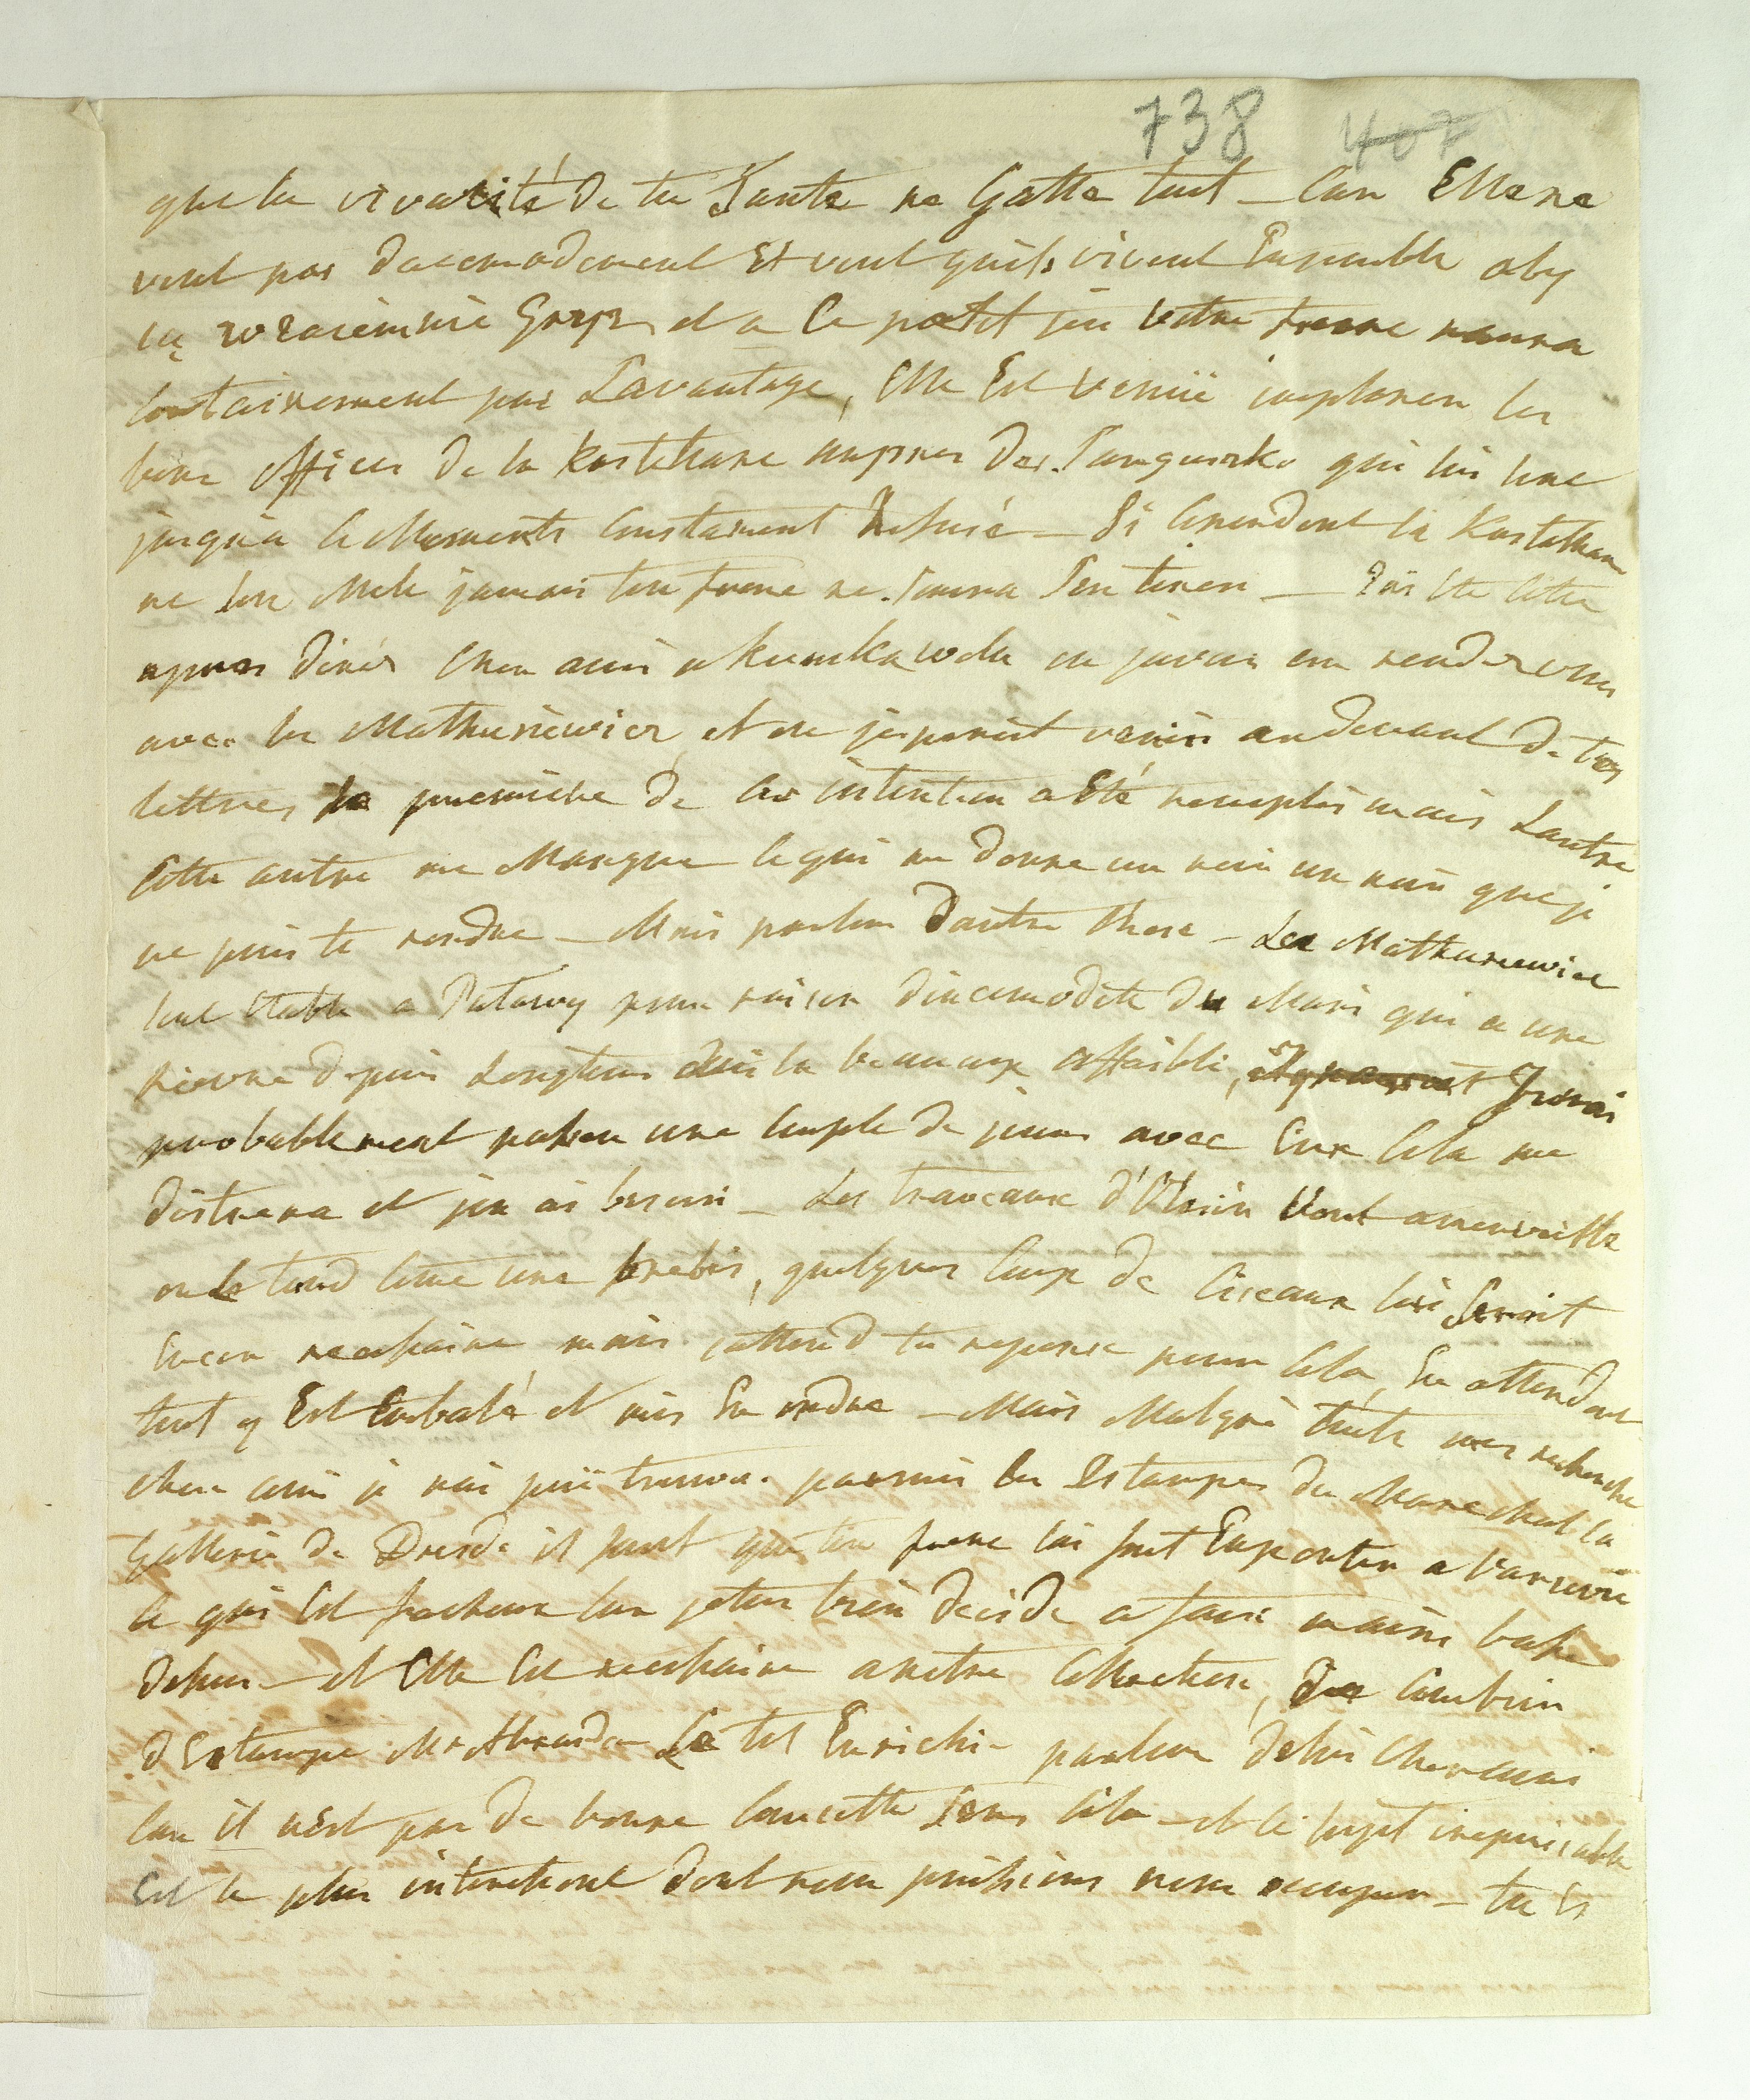 738 407
que la vivacité de ta Tante ne Gatte tout – Car Elle ne
veut pas dacomodement Et veut quils vivent Ensemble aby
się wzaiemnie Gryzi et a Ce petit jeu votre frere naura
Certainement pas Lavantage, Elle Est venüe implorer les
bons Offices de la Kastelane aupres des Sanguszko qui lui sont
jusqua Ce Moments Constament Refusé – Si Cependent la Kastellane
ne sen Mele jamais ton frere ne Saura Sen tirer – Jai Ete Cette
apres diner Cher ami a Kurukawola ou javais un rendezvous
avec les Mathusiewicz et ou jesperoit venir audevant de tes
lettres la premiere de Ces intention a Eté remplis mais Lautre
Cette autre me Manque Ce qui me donne un noir un noir que je
ne puis te rendre – Mais parlons dautre Chose – Les Mathusewicz
sont Etabli a Pulawy pour raison dincomodité du Mari qui a une
fievre depuis Longtems qui la beaucoup affaibli, Jirai
probablement passer une Couple de jours avec Eux Cela me
distraira et jen ai besoin – Les traveaux d'Olesin Vont amerveille
on Le tond Come une brebis, quelques Coups de Ciseaux lui Seroit
Encor necessaire mais jattend ta reponse pour Cela, En attendant
tout y Est Embalé et mis En ordre – Mais Malgré toute mes recherche
cher ami je nai puü trouver parmis les Estampes du Marechal la
Gallerie de Dresde il faut que ton frere lai fait Emporter a Varsovie
Ce qui Est facheux Car jetois bien decidé a faire maine basse
desus – et Elle Est necessaire a notre Collection, de Combien
dEstampe Mr Abramo Sest til Enrichi – parlons delui Cher ami
Car il nest pas de bonne Causette sans Cela – et Ce sujet inepuisable
Est le plus interessant dont nous puissions nous occuper – tu Es